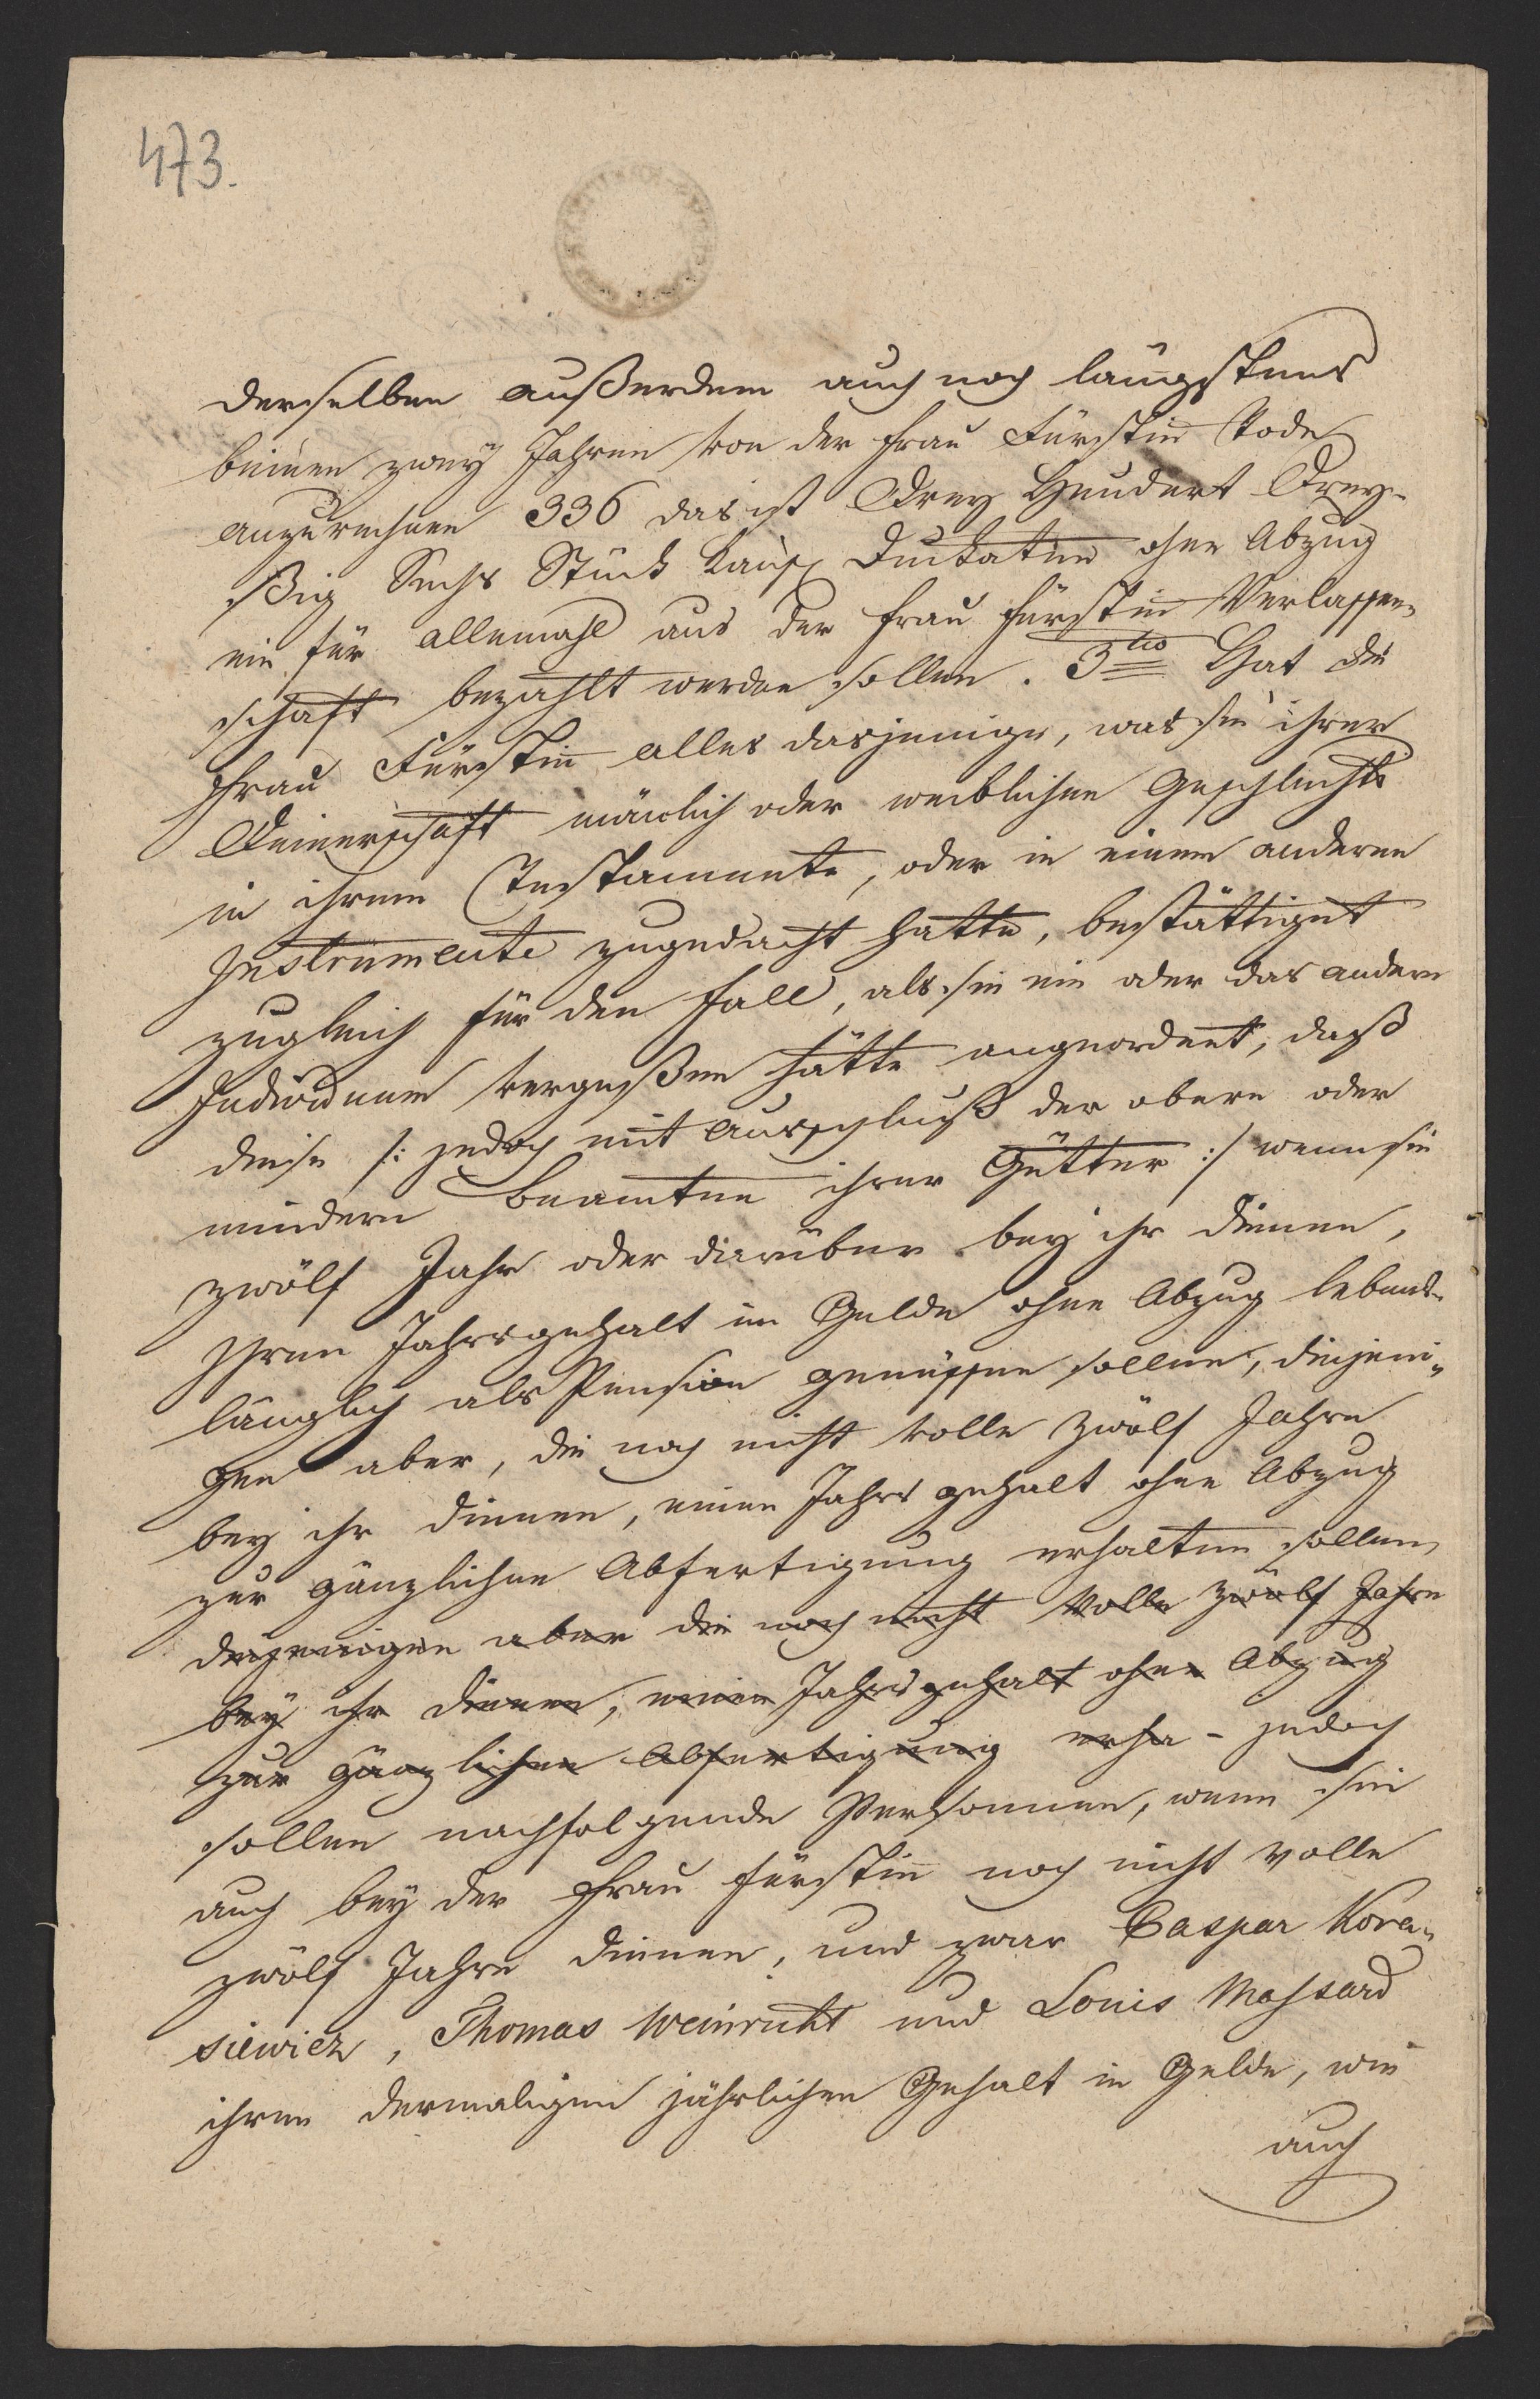 473.
derselben außerdem auch noch längstens
beinen zwey Jahren von der Frau Fürstin Tode
anzurechnen 336 das ist Drey Hundert Drey-
ßig Sechs Stück Kais. Duckaten ohne Abzug
ein für allemahl aus der Frau Fürstin Verlassen-
schaft bezahlt werden sollen. 3tio Hat die
Frau Fürstin alles dasjenige, was sie ihrer
Dienerschaft mänlich oder weiblichen Geschlechts
in ihrem Testamente, oder in einem anderen
Instrumente zugedacht hatte, bestättiget
zugleich für den Fall, als sie ein oder das andere
Individuum vergeßen hätte angeordnet, daß
diese /: jedoch mit Ausschluß der obern oder
mindern Beamten ihrer Gütter :/ wenn sie
zwölf Jahr oder darüber bey ihr dienen,
Ihren Jahrsgehalt im Gelde ohne Abzug lebens-
länglich als Pension genüssen sollen, diejeni-
gen aber, die noch nicht volle zwölf Jahre
bey ihr dienen, einen Jahrs gehalt ohne Abzug
zur gänzlichen Abfertigung erhalten sollen,
diejenigen aber die noch nicht volle zwölf Jahre
bey ihr dienen, einen Jahrsgehalt ohne Abzug
zur gänzlichen Abfertigung erha - jedoch
sollen nachfolgende Personnen, wenn sie
auch bey der Frau Fürstin noch nicht volle
zwölf Jahre dienen, und zwar Caspar Kora-
siewicz, Thomas Weinricht und Louis Massard
ihren dermaligen jährlichen Gehalt in Gelde, wie
auch